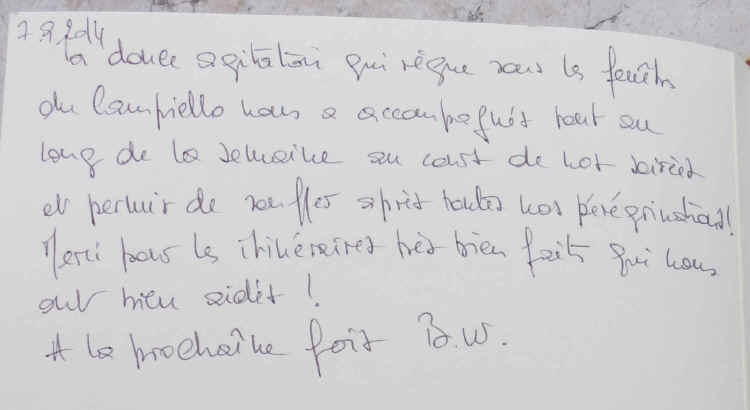 7.9.2014
la douce agitation qui règne sous les fenêtres
du Campiello nous a accompagnés tout au
long de la semaine au cours de nos soirées
et permis de souffler après toutes nos pérégrinations!
Merci pour les itinéraires très bien faits qui nous
ont bien aidés !
A la prochaine fois B.W.